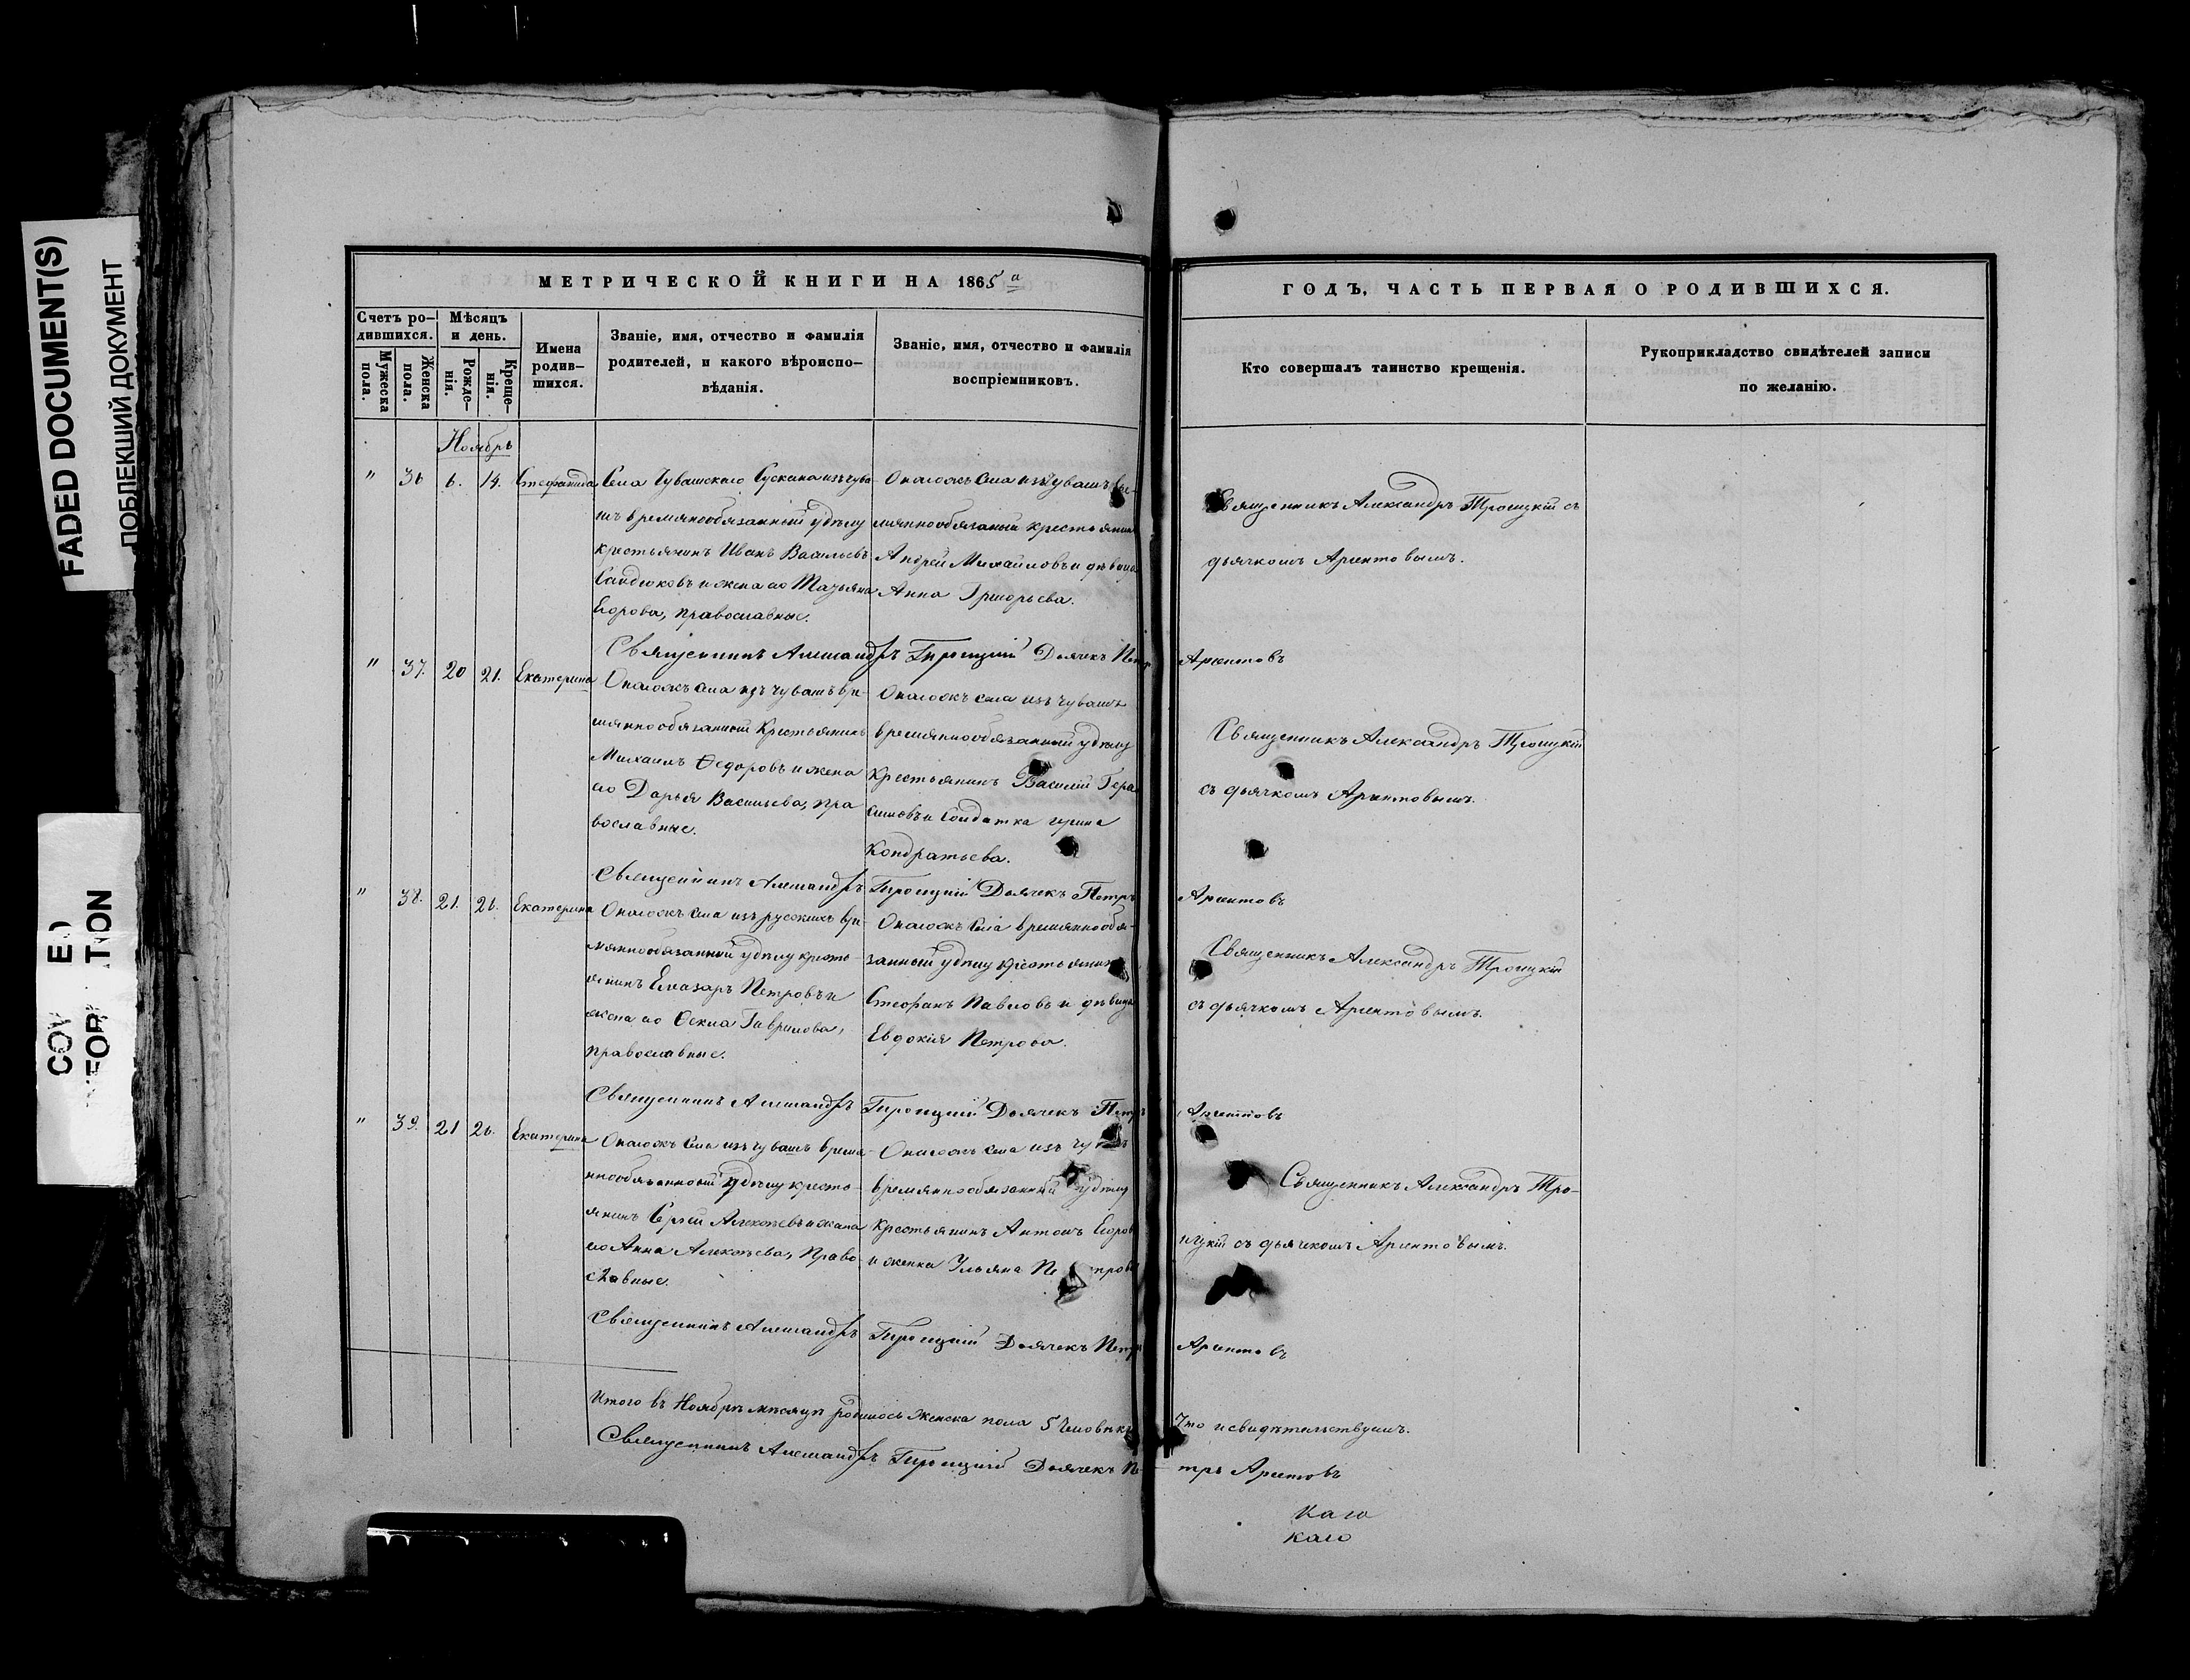 FADED DOCUMENT(S)
ПОБЛЕКШИЙ ДОКУМЕНТ
МЕТРИЧЕСКОЙ КНИГИ НА 1865 й
ГОДЪ, ЧАСТЬ ПЕРВАЯ О РОДИВШИХСЯ.
Счетъ ро-
дившихся.
Мужеска
пола.
Женска
пола.
Мѣсяцъ
и день.
Рожде-
нія.
Креще-
нія.
Имена
родив-
шихся.
Званіе, имя, отчество и фамилія
родителей, и какого вѣроиспо-
вѣданія.
Званіе, имя, отчество и фамилія
воспріемниковъ.
Кто совершалъ таинство крещенія.
Рукоприкладство свидѣтелей записи
по желанію.
Ноябрь
" 36 6. 14. Стефанида
Села Чувашскаго Сускана изъ чува
шъ времяннообязанный удѣлу
крестьянинъ Иванъ Васильевъ
Сандюковъ и жена его Татьяна
Егорова, православные.
Онагожъ села изъ Чувашъ вре-
мяннообязаный крестьянинъ
Андрей Михайловъ и дѣвица
Анна Григорьева.
Священникъ Александръ Троицкій съ
дьячкомъ Аристовымъ.
Священникъ Александръ Троицкій Дьячекъ Петръ Аристовъ
" 37. 20 21. Екатерина
Онагожъ села изъ чувашъ вре-
мяннообязанный Крестьянинъ
Михаилъ Ѳедоровъ и жена
его Дарья Васильева, пра
вославные.
Онагожъ села изъ чувашъ
времяннообязанный удѣлу
Крестьянинъ Василій Гера
симовъ и Солдатка Ирина
Кондратьева.
Священникъ Александръ Троицкій
съ дьячкомъ Аристовымъ.
Священникъ Александръ Троицкій Дьячекъ Петръ Аристовъ
" 38. 21. 26. Екатерина
Онагожъ села изъ русскихъ вре-
мяннообязанный удѣлу кресть-
янинъ Елазаръ Петровъ и
жена его Ѳекла Гаврилова,
православные.
Онагожъ села времяннообя-
занный удѣлу крестьянинъ
Стефанъ Павловъ и дѣвица
Евдокія Петрова.
Священникъ Александръ Троицкій
съ дьячкомъ Аристовымъ.
Священникъ Александръ Троицкій Дьячекъ Петръ Аристовъ
" 39. 21 26. Екатерина
Онагожъ села изъ чувашъ время-
ннообязанный удѣлу кресть-
янинъ Сергѣй Алексѣевъ и жена
его Анна Алексѣева, Право-
славные.
Онагожъ села изъ чувашъ
времяннообязанный удѣлу
Крестьянинъ Антонъ Егоровъ
и женка Ульяна Петрова
Священникъ Александръ Тро-
ицкій съ дьячкомъ Аристовымъ.
Священникъ Александръ Троицкій Дьячекъ Петръ Аристовъ
Итого въ Ноябрѣ мѣсяцѣ родилось женска пола 5 человѣкъ Что и свидѣтельствуемъ.
Священникъ Александръ Троицкій Дьячекъ Петръ Аристовъ
каго
каго